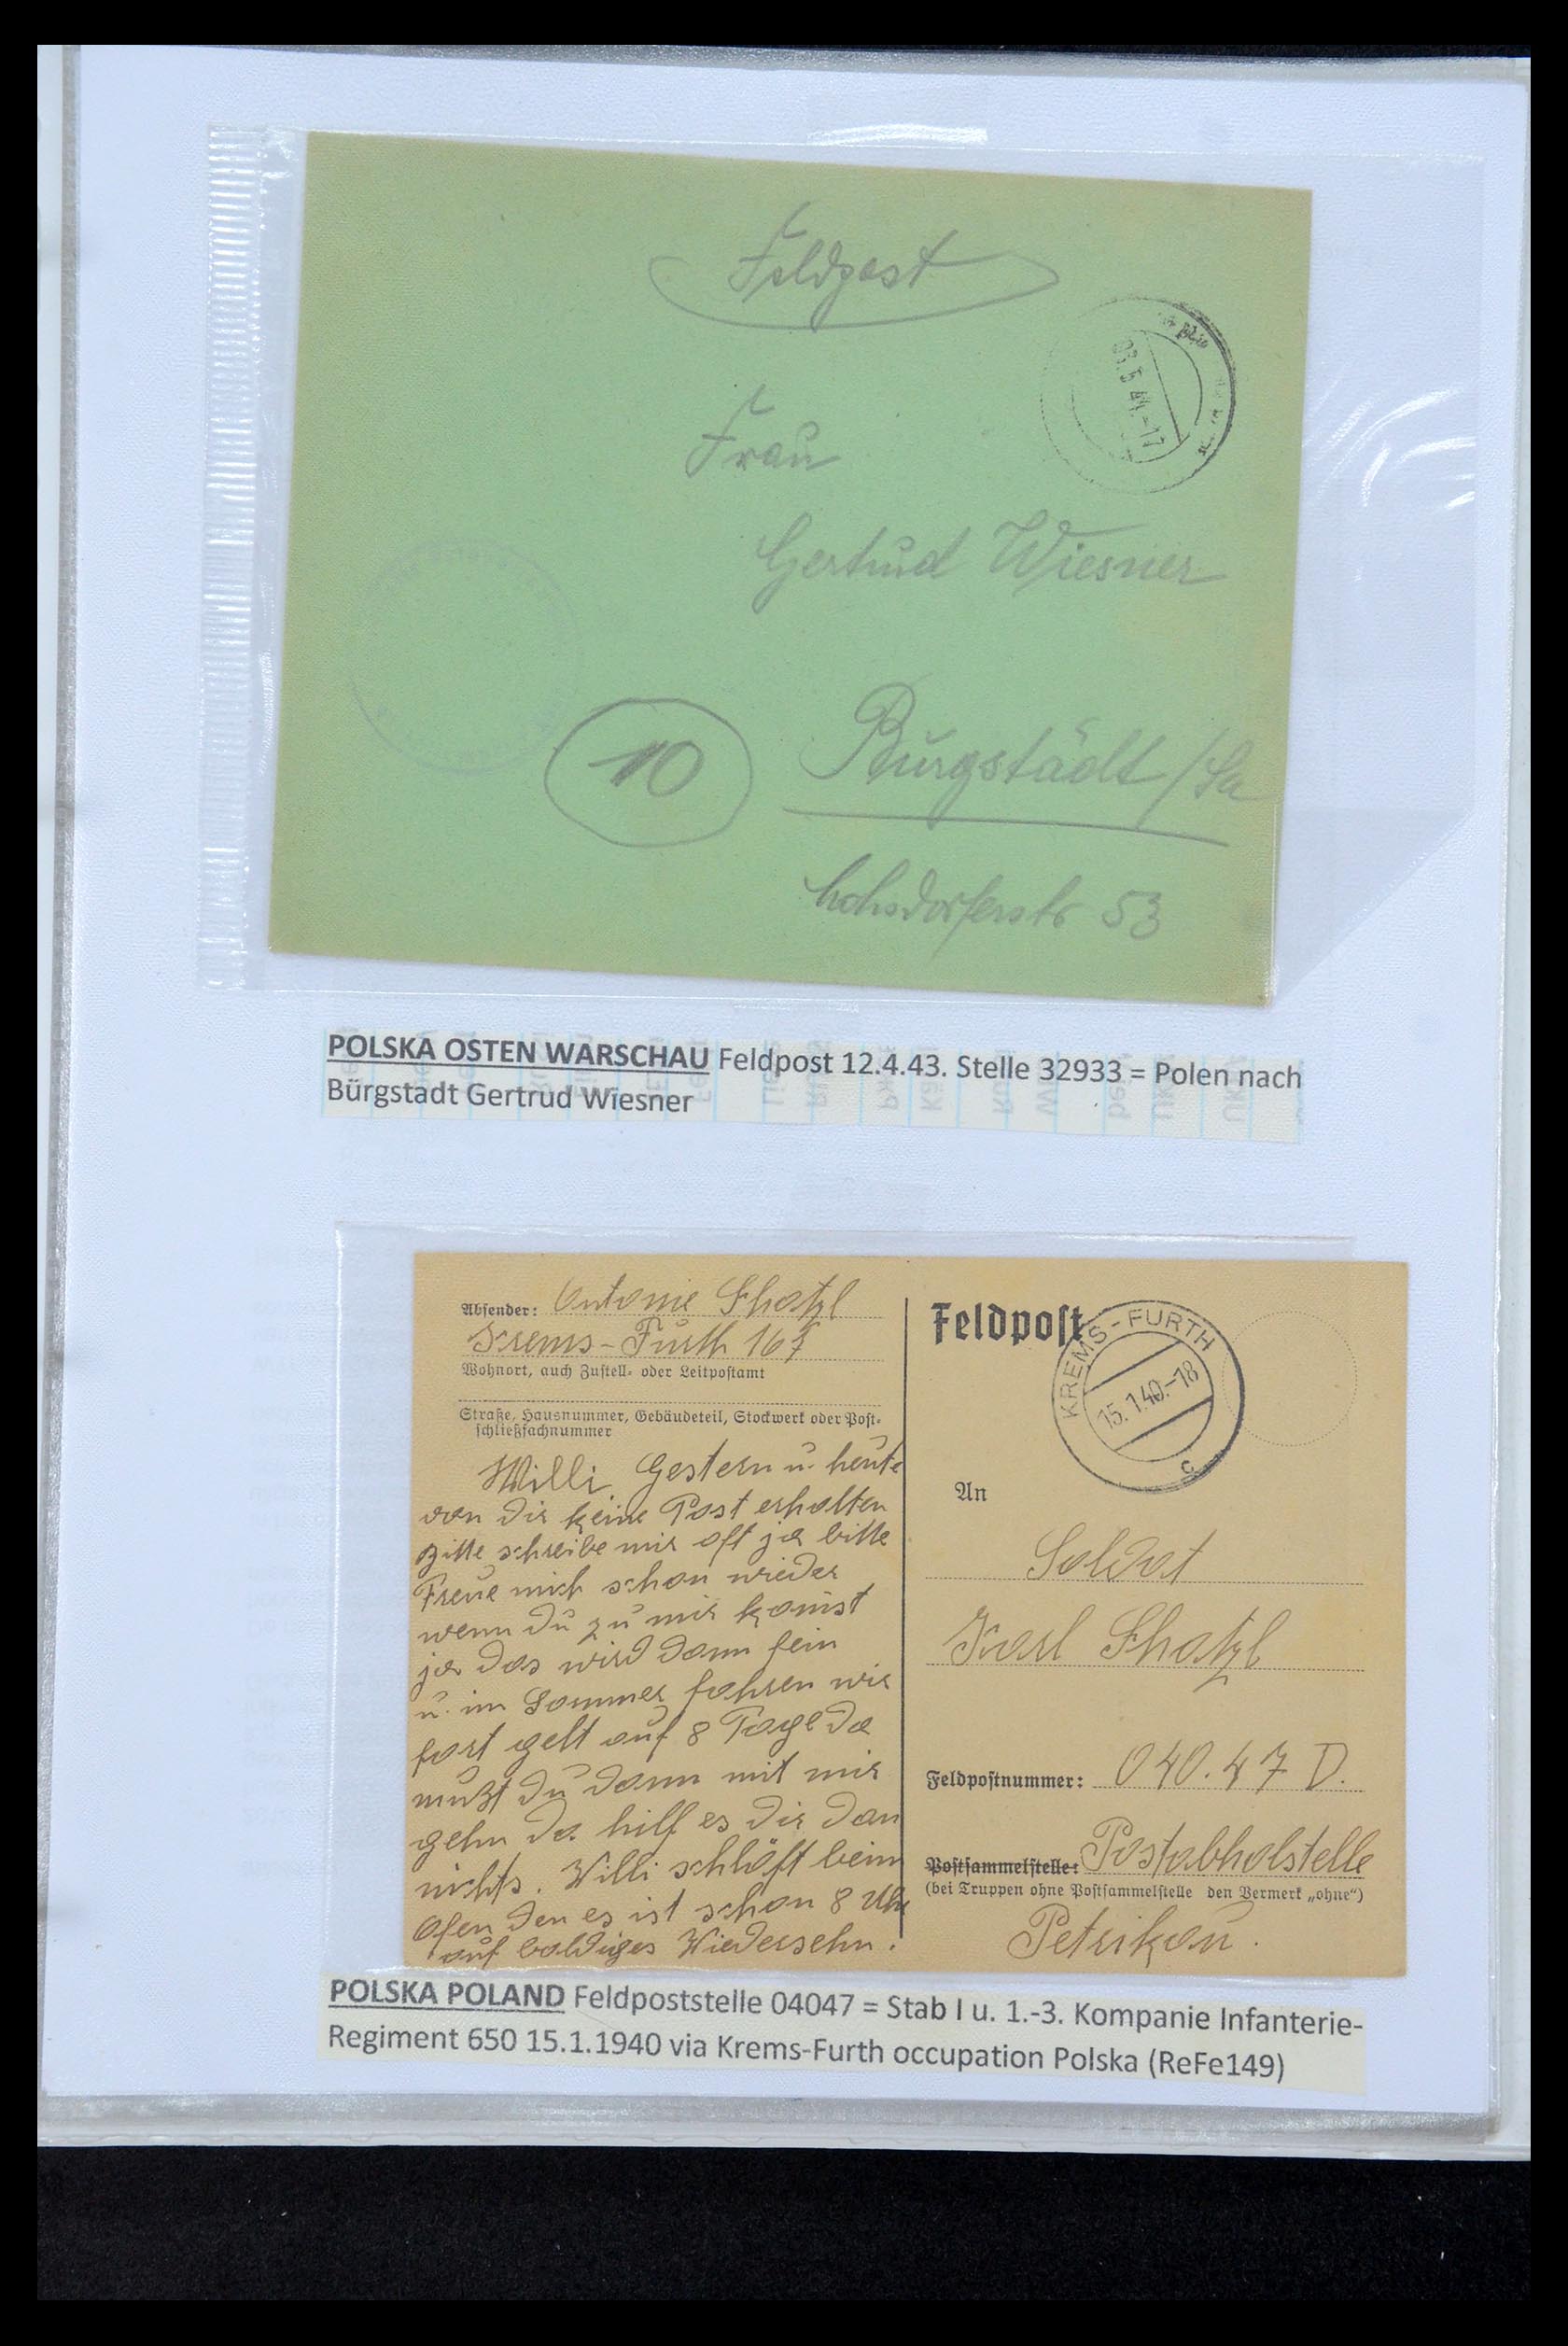 Feldpost
03.5.44.-17
Frau
Gertrud Wiesner
10
Burgstädt /Sa
53
POLSKA OSTEN WARSCHAU Feldpost 12.4.43. Stelle 32933 = Polen nach
Bürgstadt Gertrud Wiesner
Absender: Antonie Shatzl
Krems-Furth 167
Wohnort, auch Zustell- oder Leitpostamt
Straße, Hausnummer, Gebäudeteil, Stockwerk oder Post-
schließfachnummer
Willi Gestern u. heute
von dir keine Post erhalten
Bitte schreibe mir oft ja bitte
Freue mich schon wieder
wenn du zu mir komst
ja das wird dann fein
u. im Sommer fahren wir
fort gelt auf 8 Tage da
mußt du dann mit mir
gehn da hilf es dir dan
nichts. Willi schläft beim
Ofen den es ist schon 8 Uhr
auf baldiges Wiedersehn.
Feldpost
KREMS-FURTH
15.1.40.-18
c
An
Soldat
Karl Shatzl
Feldpostnummer: 040.47 D.
Postsammelstelle: Postabholstelle
(bei Truppen ohne Postsammelstelle den Vermerk „ohne“)
Petrikau.
POLSKA POLAND Feldpoststelle 04047 = Stab I u. 1.-3. Kompanie Infanterie-
Regiment 650 15.1.1940 via Krems-Furth occupation Polska (ReFe149)